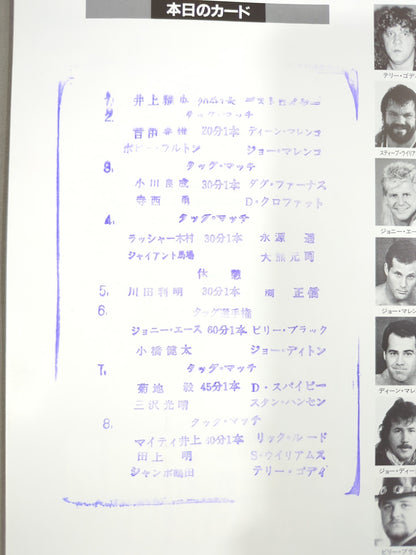 本日のカード
1. 井上雅央
2. タッグ・マッチ
百田義浩 20分1本 ディーン・マレンコ
ボビー・フルトン ジョー・マレンコ
3. タッグ・マッチ
小川良成 30分1本 ダグ・ファーナス
寺西 勇 D・クロファット
4. タッグ・マッチ
ラッシャー木村 30分1本 永源 遙
ジャイアント馬場 大熊元司
休憩
5. 川田利明 30分1本 渕 正信
6. タッグ選手権
ジョニー・エース 60分1本 ビリー・ブラック
小橋健太 ジョー・ディトン
7. タッグ・マッチ
菊地 毅 45分1本 D・スパイビー
三沢光晴 スタン・ハンセン
8. タッグ・マッチ
マイティ井上 40分1本 リック・ルード
田上 明 S・ウイリアムス
ジャンボ鶴田 テリー・ゴディ
テリー・ゴデ
スティーブ・ウイリア
ジョニー・エー
ジョー・マレン
ディーン・マレ
ジョー・ディー
ビリー・ブラ